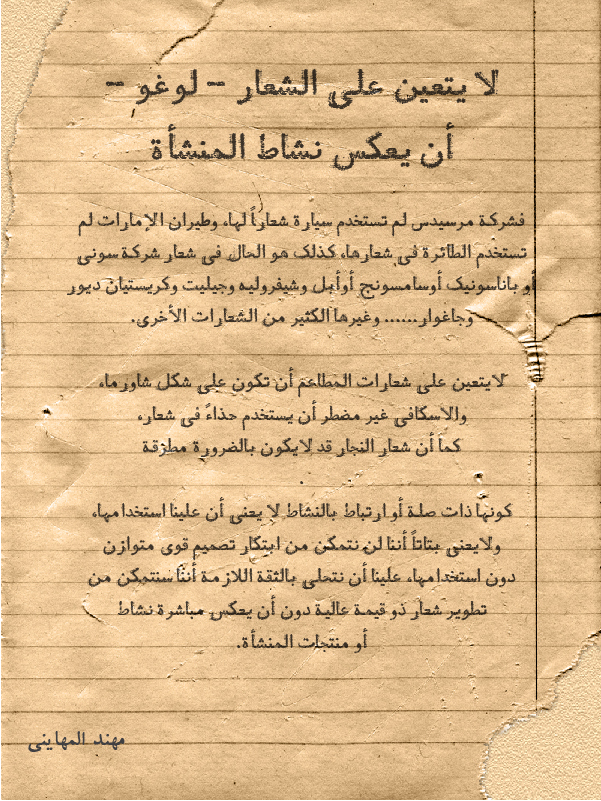 لا يتعين على الشعار - لوغو -
أن يعكس نشاط المنشأة
فشركة مرسيدس لم تستخدم سيارة شعاراً لها، وطيران الإمارات لم
تستخدم الطائرة في شعارها، كذلك هو الحال في شعار شركة سوني
أو باناسونيك أوسامسونج أوأبل وشيفروليه وجيليت وكريستيان ديور
وجاغوار...... وغيرها الكثير من الشعارات الأخرى.
لايتعين على شعارات المطاعم أن تكون على شكل شاورما،
والاسكافي غير مضطر أن يستخدم حذاءً في شعار،
كما أن شعار النجار قد لايكون بالضرورة مطرقة
كونها ذات صلة أو ارتباط بالنشاط لا يعني أن علينا استخدامها،
ولايعني بتاتاً أننا لن نتمكن من ابتكار تصميم قوي متوازن
دون استخدامها، علينا أن نتحلى بالثقة اللازمة أننا سنتمكن من
تطوير شعار ذو قيمة عالية دون أن يعكس مباشرة نشاط
أو منتجات المنشأة.
مهند المهايني